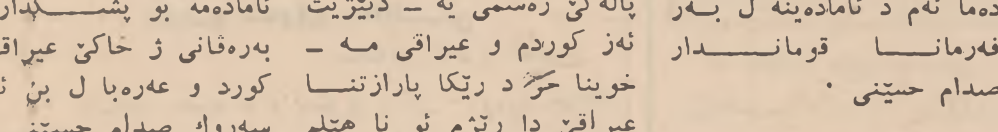 دەما ئەم د ئامادەینە ل بەر
فەرمانا قوماندار
صدام حسێنی .
پالەکێ رەسمی یە ــ دبێژیت
ئەز کوردم و عیراقی مە ــ
خوینا خۆ د رێکا پارازتنا
عیراقێ دا رێژم ئو نا هێلم
ئامادەمە بو پشکدار
بەرەڤانی ژ خاکێ عیراق
کورد و عەرەبا ل بن
سەروك صدام حسێنی